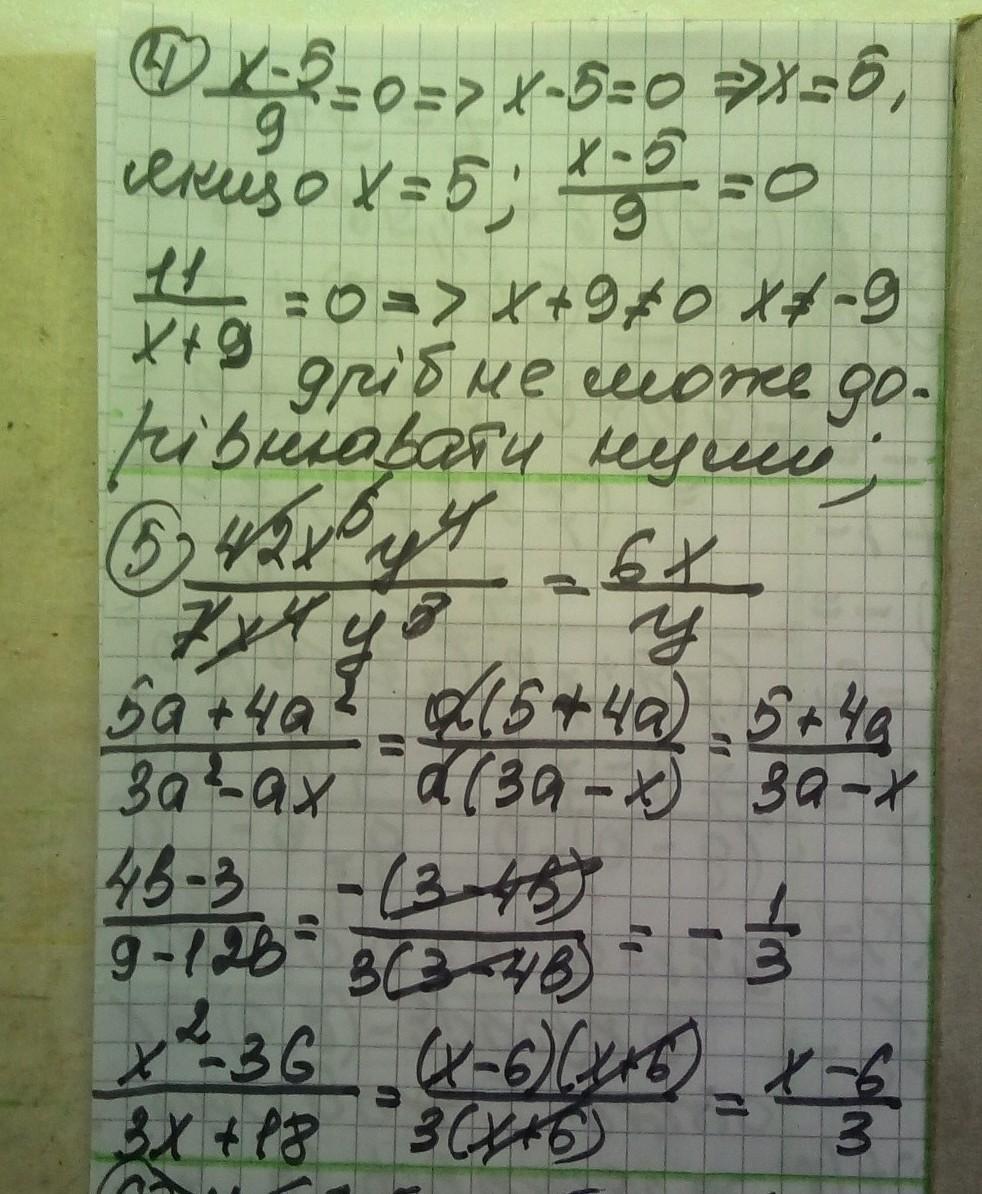 ④ (x-5)/9 = 0 => x-5=0 => x=5,
якщо x=5; (x-5)/9 = 0
11/(x+9) = 0 => x+9≠0 x≠-9
дріб не може до-
рівнювати нулю;
⑤ (42x⁵y⁴)/(7x⁴y⁵) = 6x/y
(5a+4a²)/(3a²-ax) = a(5+4a)/a(3a-x) = (5+4a)/(3a-x)
(4b-3)/(9-12b) = -(3-4b)/3(3-4b) = -1/3
(x²-36)/(3x+18) = (x-6)(x+6)/3(x+6) = (x-6)/3